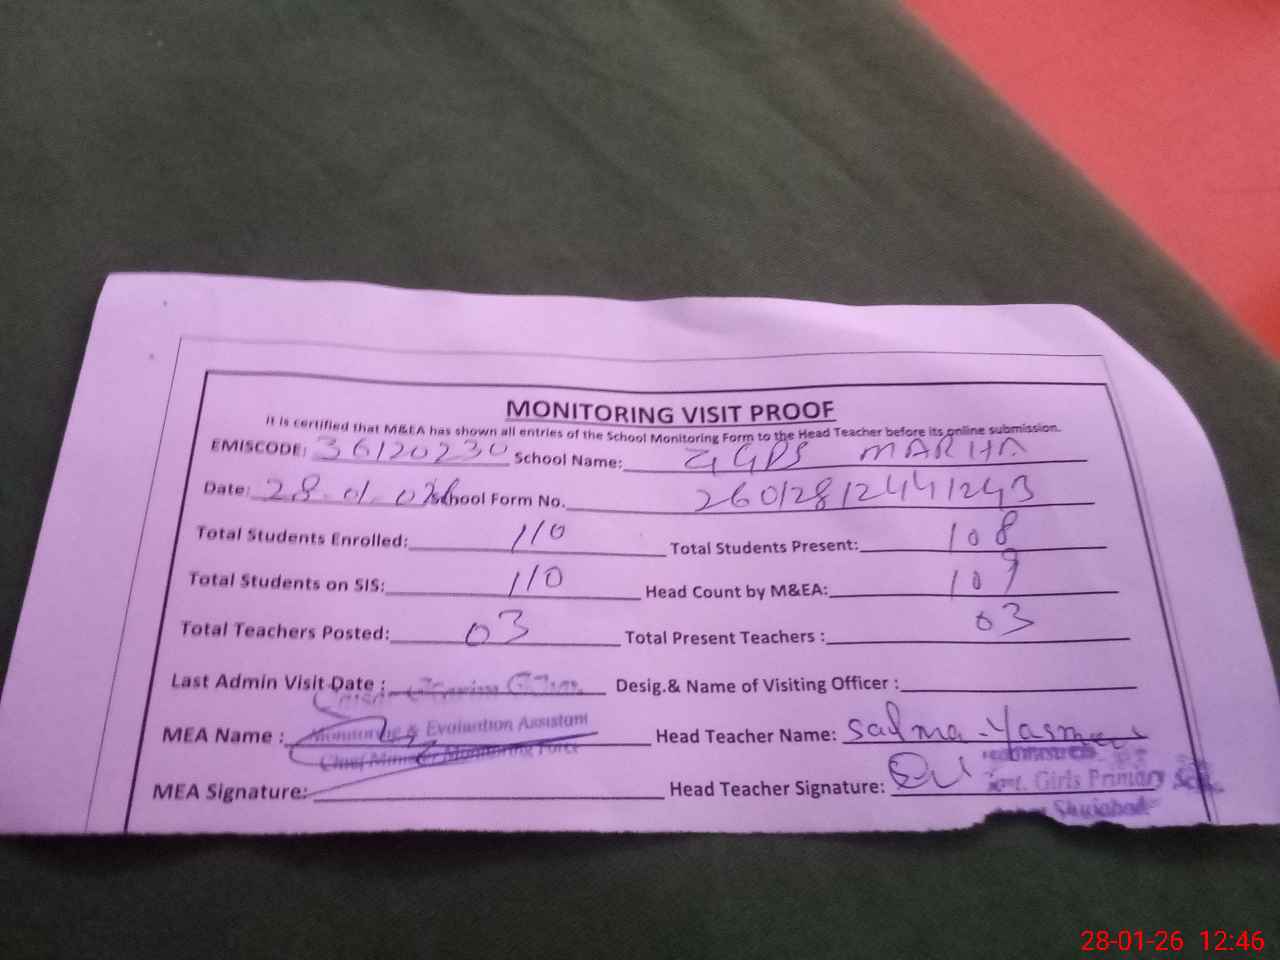 MONITORING VISIT PROOF
It is certified that M&EA has shown all entries of the School Monitoring Form to the Head Teacher before its online submission.
EMISCODE: 36120230 School Name: GGPS MARHA
Date: 28.01.026 School Form No. 260128124441243
Total Students Enrolled: 110 Total Students Present: 108
Total Students on SIS: 110 Head Count by M&EA: 109
Total Teachers Posted: 03 Total Present Teachers : 03
Last Admin Visit Date : Desig.& Name of Visiting Officer :
MEA Name : Monitoring & Evaluation Assistant Head Teacher Name: Salma Yasmeen
Chief Minister Monitoring Force
MEA Signature: Head Teacher Signature:
Govt. Girls Primary
Shujabad
28-01-26 12:46